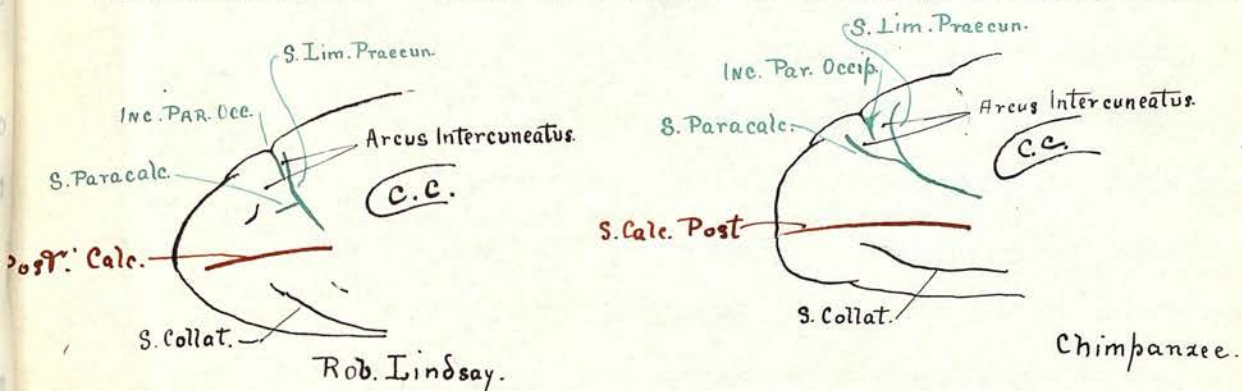 S. Lim. Praecun.
Inc. Par. Occ.
Arcus Intercuneatus.
S. Paracalc.
C.C.
Post. Calc.
S. Collat.
Rob. Lindsay.
S. Lim. Praecun.
Inc. Par. Occip.
Arcus Intercuneatus.
S. Paracalc.
C.C.
S. Calc. Post
S. Collat.
Chimpanzee.